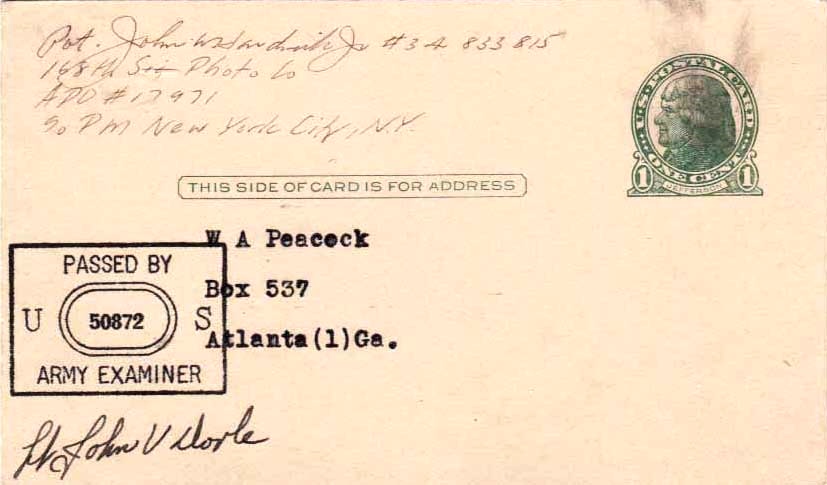 Pvt. John W Jr #34 833 815
168th Sig Photo Co
APO #17971
℅ PM New York City, N.Y.
U.S. POSTAL CARD
JEFFERSON
1 ONE CENT 1
THIS SIDE OF CARD IS FOR ADDRESS
W A Peacock
Box 537
Atlanta(1)Ga.
PASSED BY
U 50872 S
ARMY EXAMINER
Lt John V